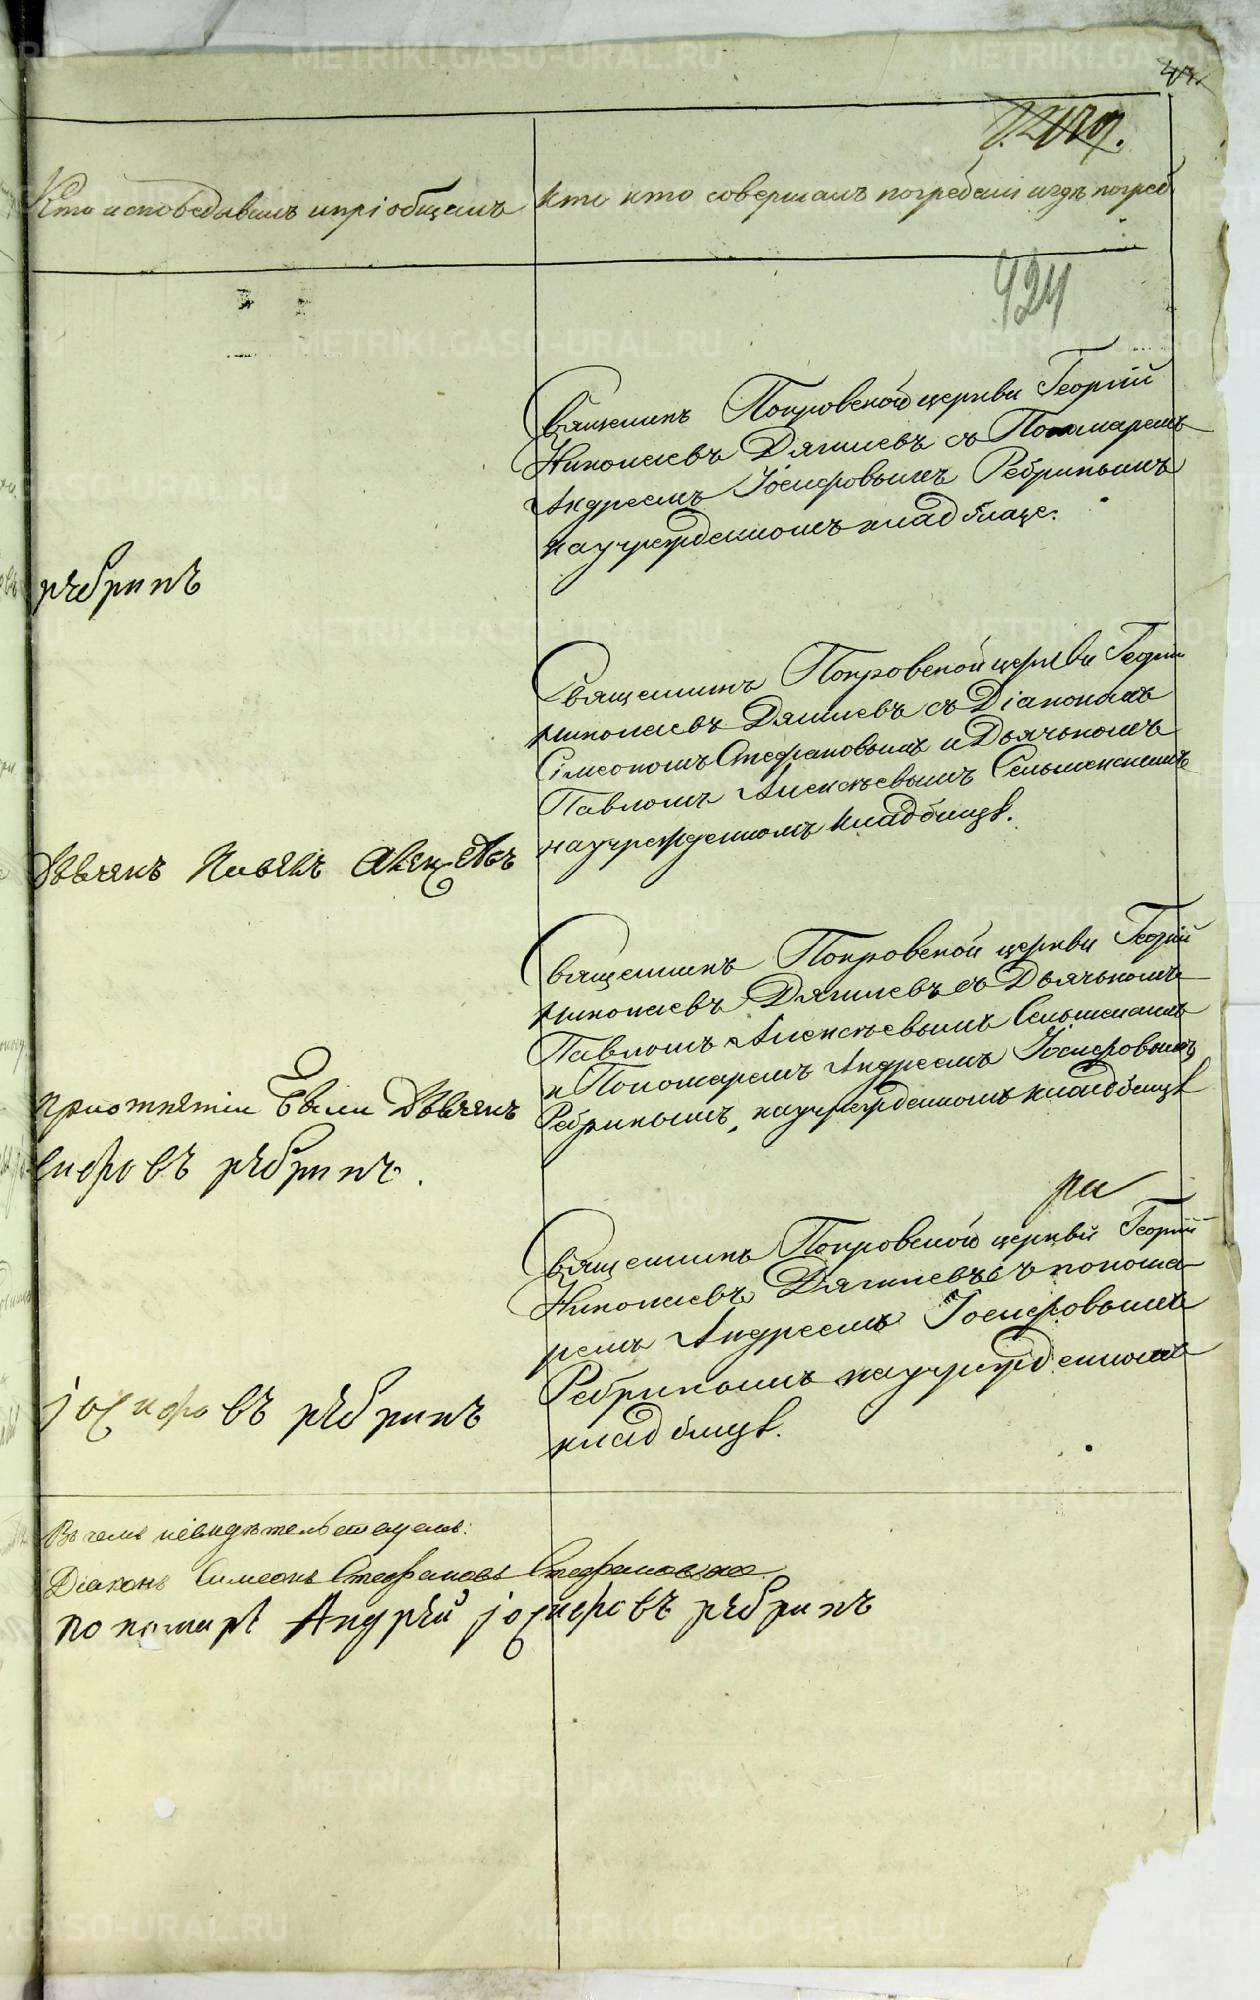 Кто исповедывалъ и пріобщалъ
кто кто совершалъ погребеніе и гдѣ погреб
424
Священникъ Покровской церкви Георгій
Николаевъ Дягилевъ съ Пономаремъ
Андреемъ Іосифовымъ Ребринымъ
на учрежденномъ кладбище.
рѣбринъ
Священникъ Покровской церкви Георгій
Николаевъ Дягилевъ съ Діакономъ
Сімеономъ Стефановымъ и Дьячькомъ
Павломъ Алексѣевымъ
на учрежденномъ кладбищѣ.
Священникъ Покровской церкви Георгій
Николаевъ Дягилевъ съ Дьячькомъ
Павломъ Алексѣевымъ
и Пономаремъ Андреемъ Іосифовымъ
Ребринымъ, на учрежденномъ кладбищѣ
были
сифовъ рѣбринъ.
ра
Священникъ Покровской церкви Георгій
Николаевъ Дягилевъ съ понома-
ремъ Андреемъ Іосифовымъ
Ребринымъ на учрежденномъ
кладбищѣ.
іосифовъ рѣбринъ
Въ чемъ и свидѣтельствуемъ:
Діаконъ Симеонъ Стефановъ
пономарь Андрей іосифовъ рѣбринъ
METRIKI.GASO-URAL.RU